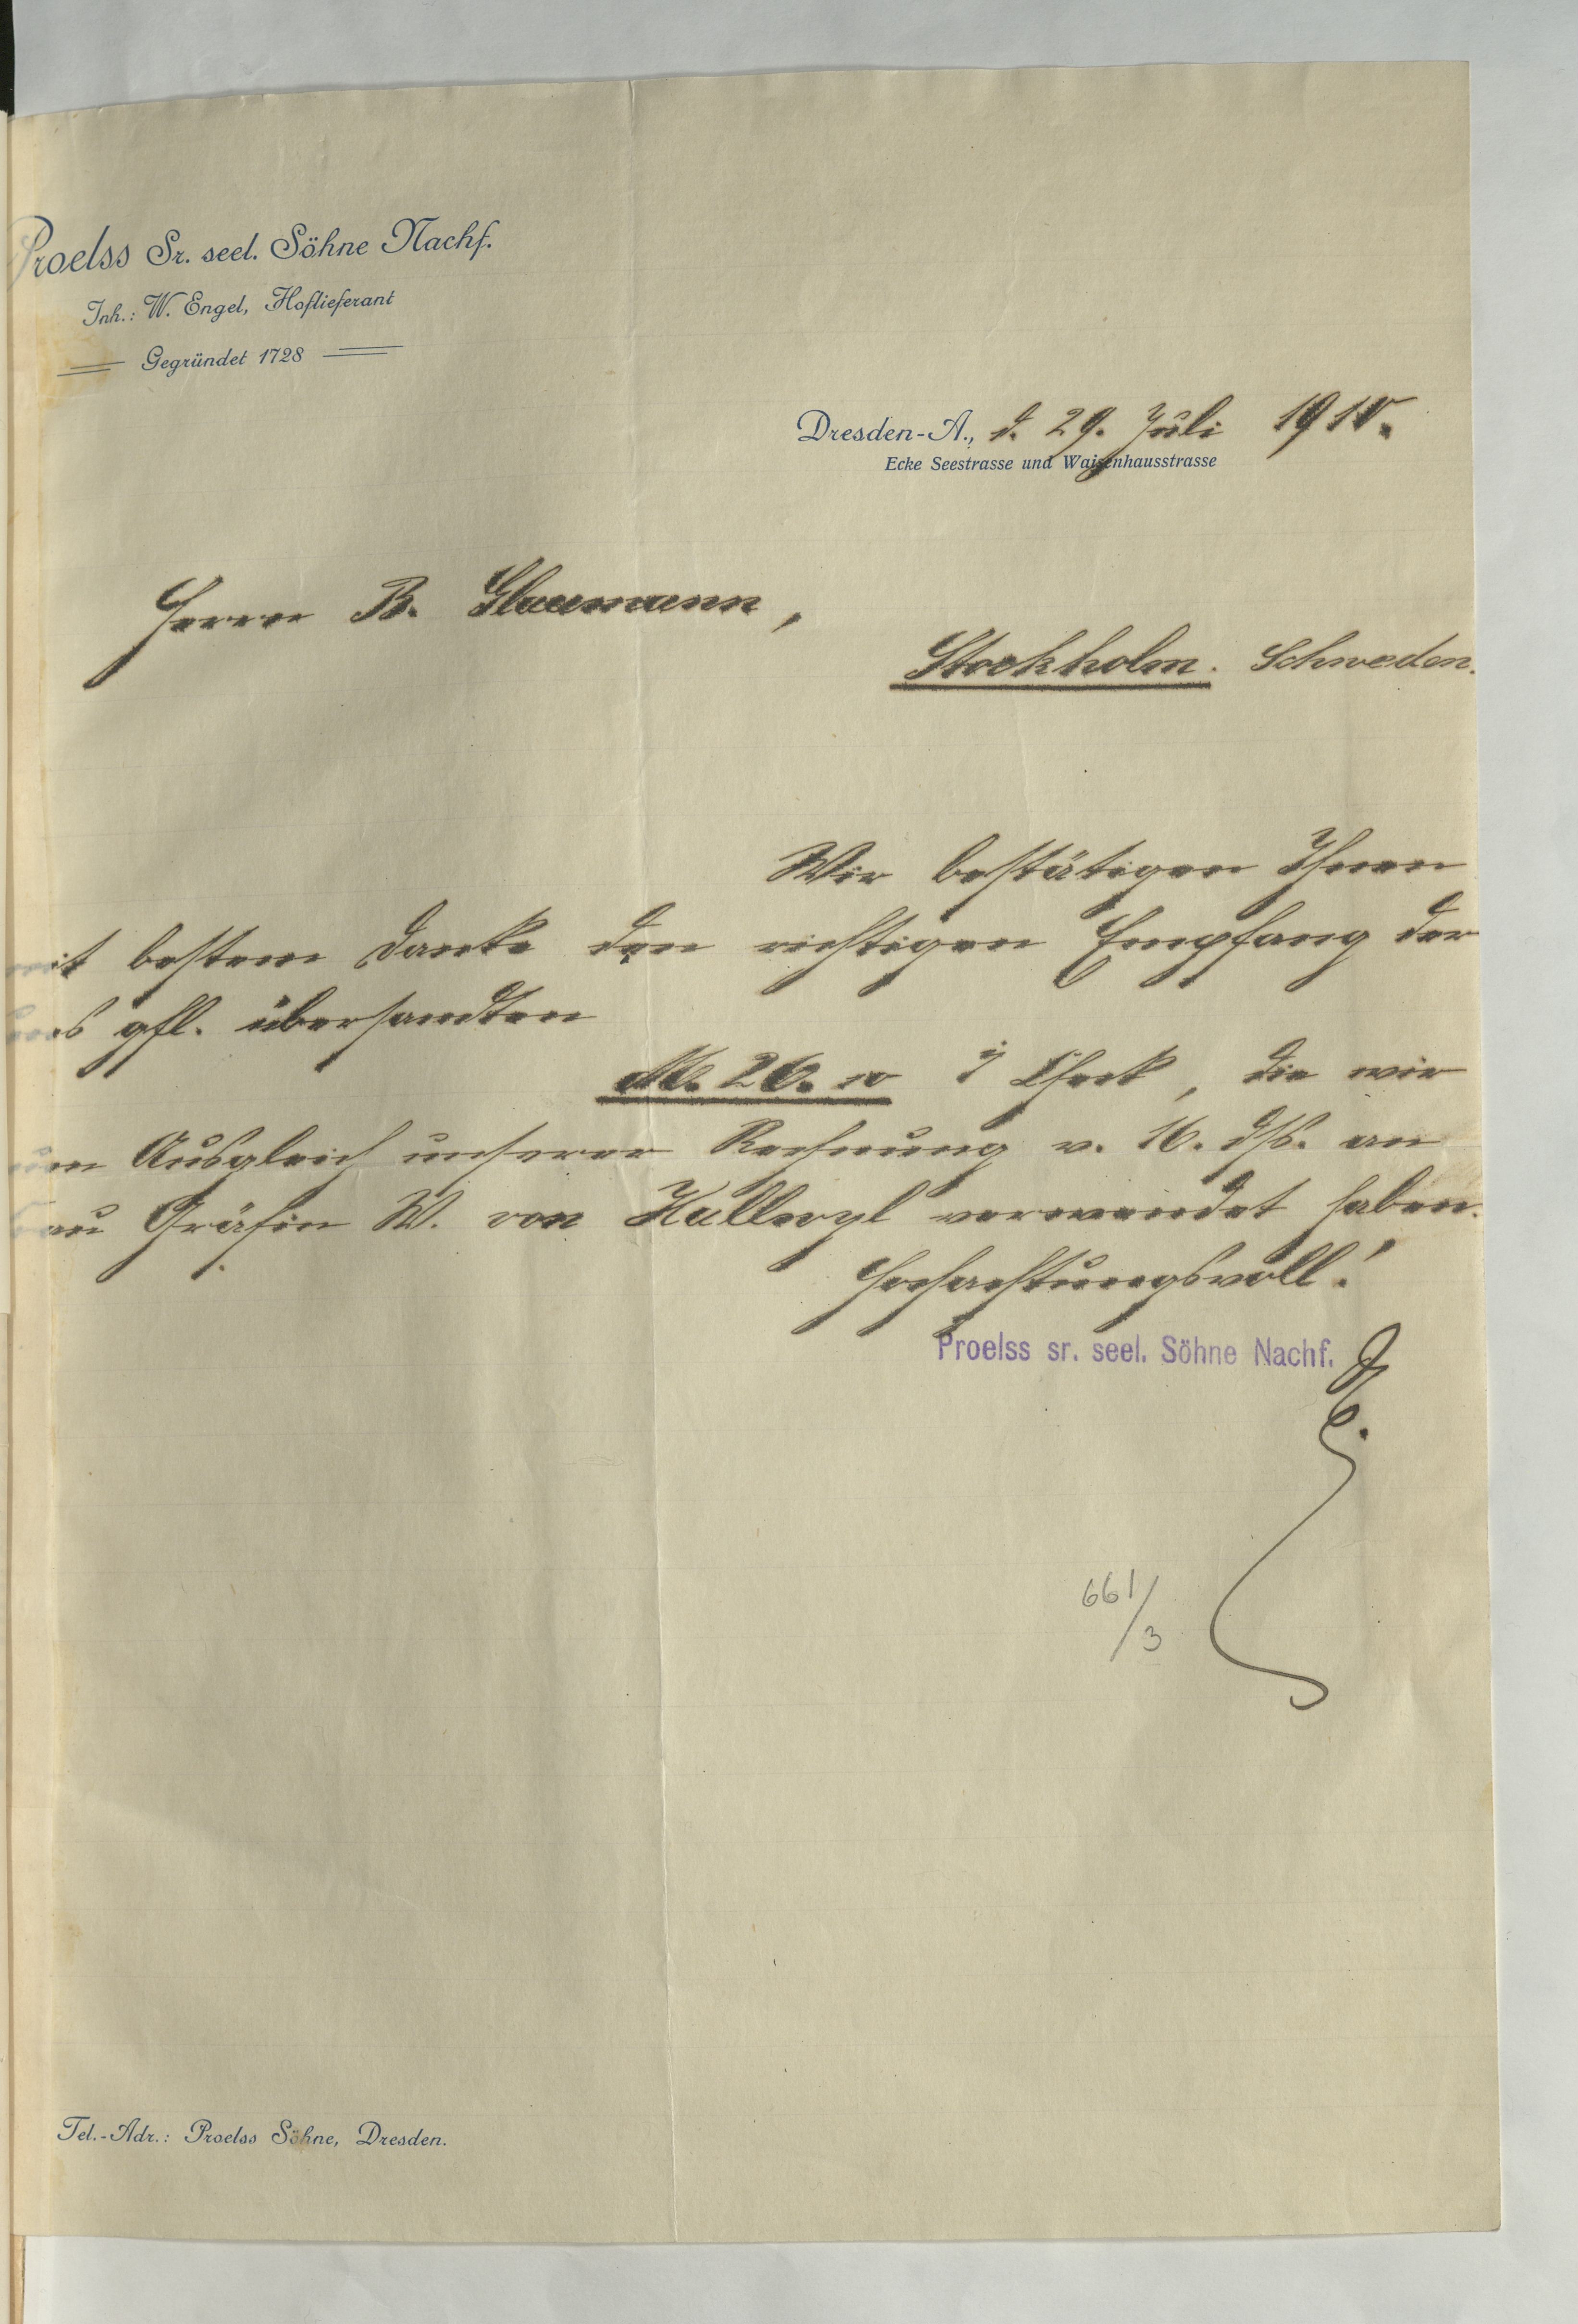 Proelss Sr. seel. Söhne Nachf.
Inh.: W. Engel, Hoflieferant
Gegründet 1728
Dresden-A., d. 29. Juli 1910.
Ecke Seestrasse und Waisenhausstrasse
Herrn B. Glaumann,
Stockholm. Schweden.
Wir bestätigen Ihnen
mit bestem Danke den richtigen Empfang der
uns gfl. übersandten
M. 26.10 Check, die wir
zum Ausgleich unserer Rechnung v. 16. dss. an
Frau Gräfin W. von Hallwyl verwendet haben.
Hochachtungsvoll!
Proelss sr. seel. Söhne Nachf.
661/3
Tel.-Adr.: Proelss Söhne, Dresden.